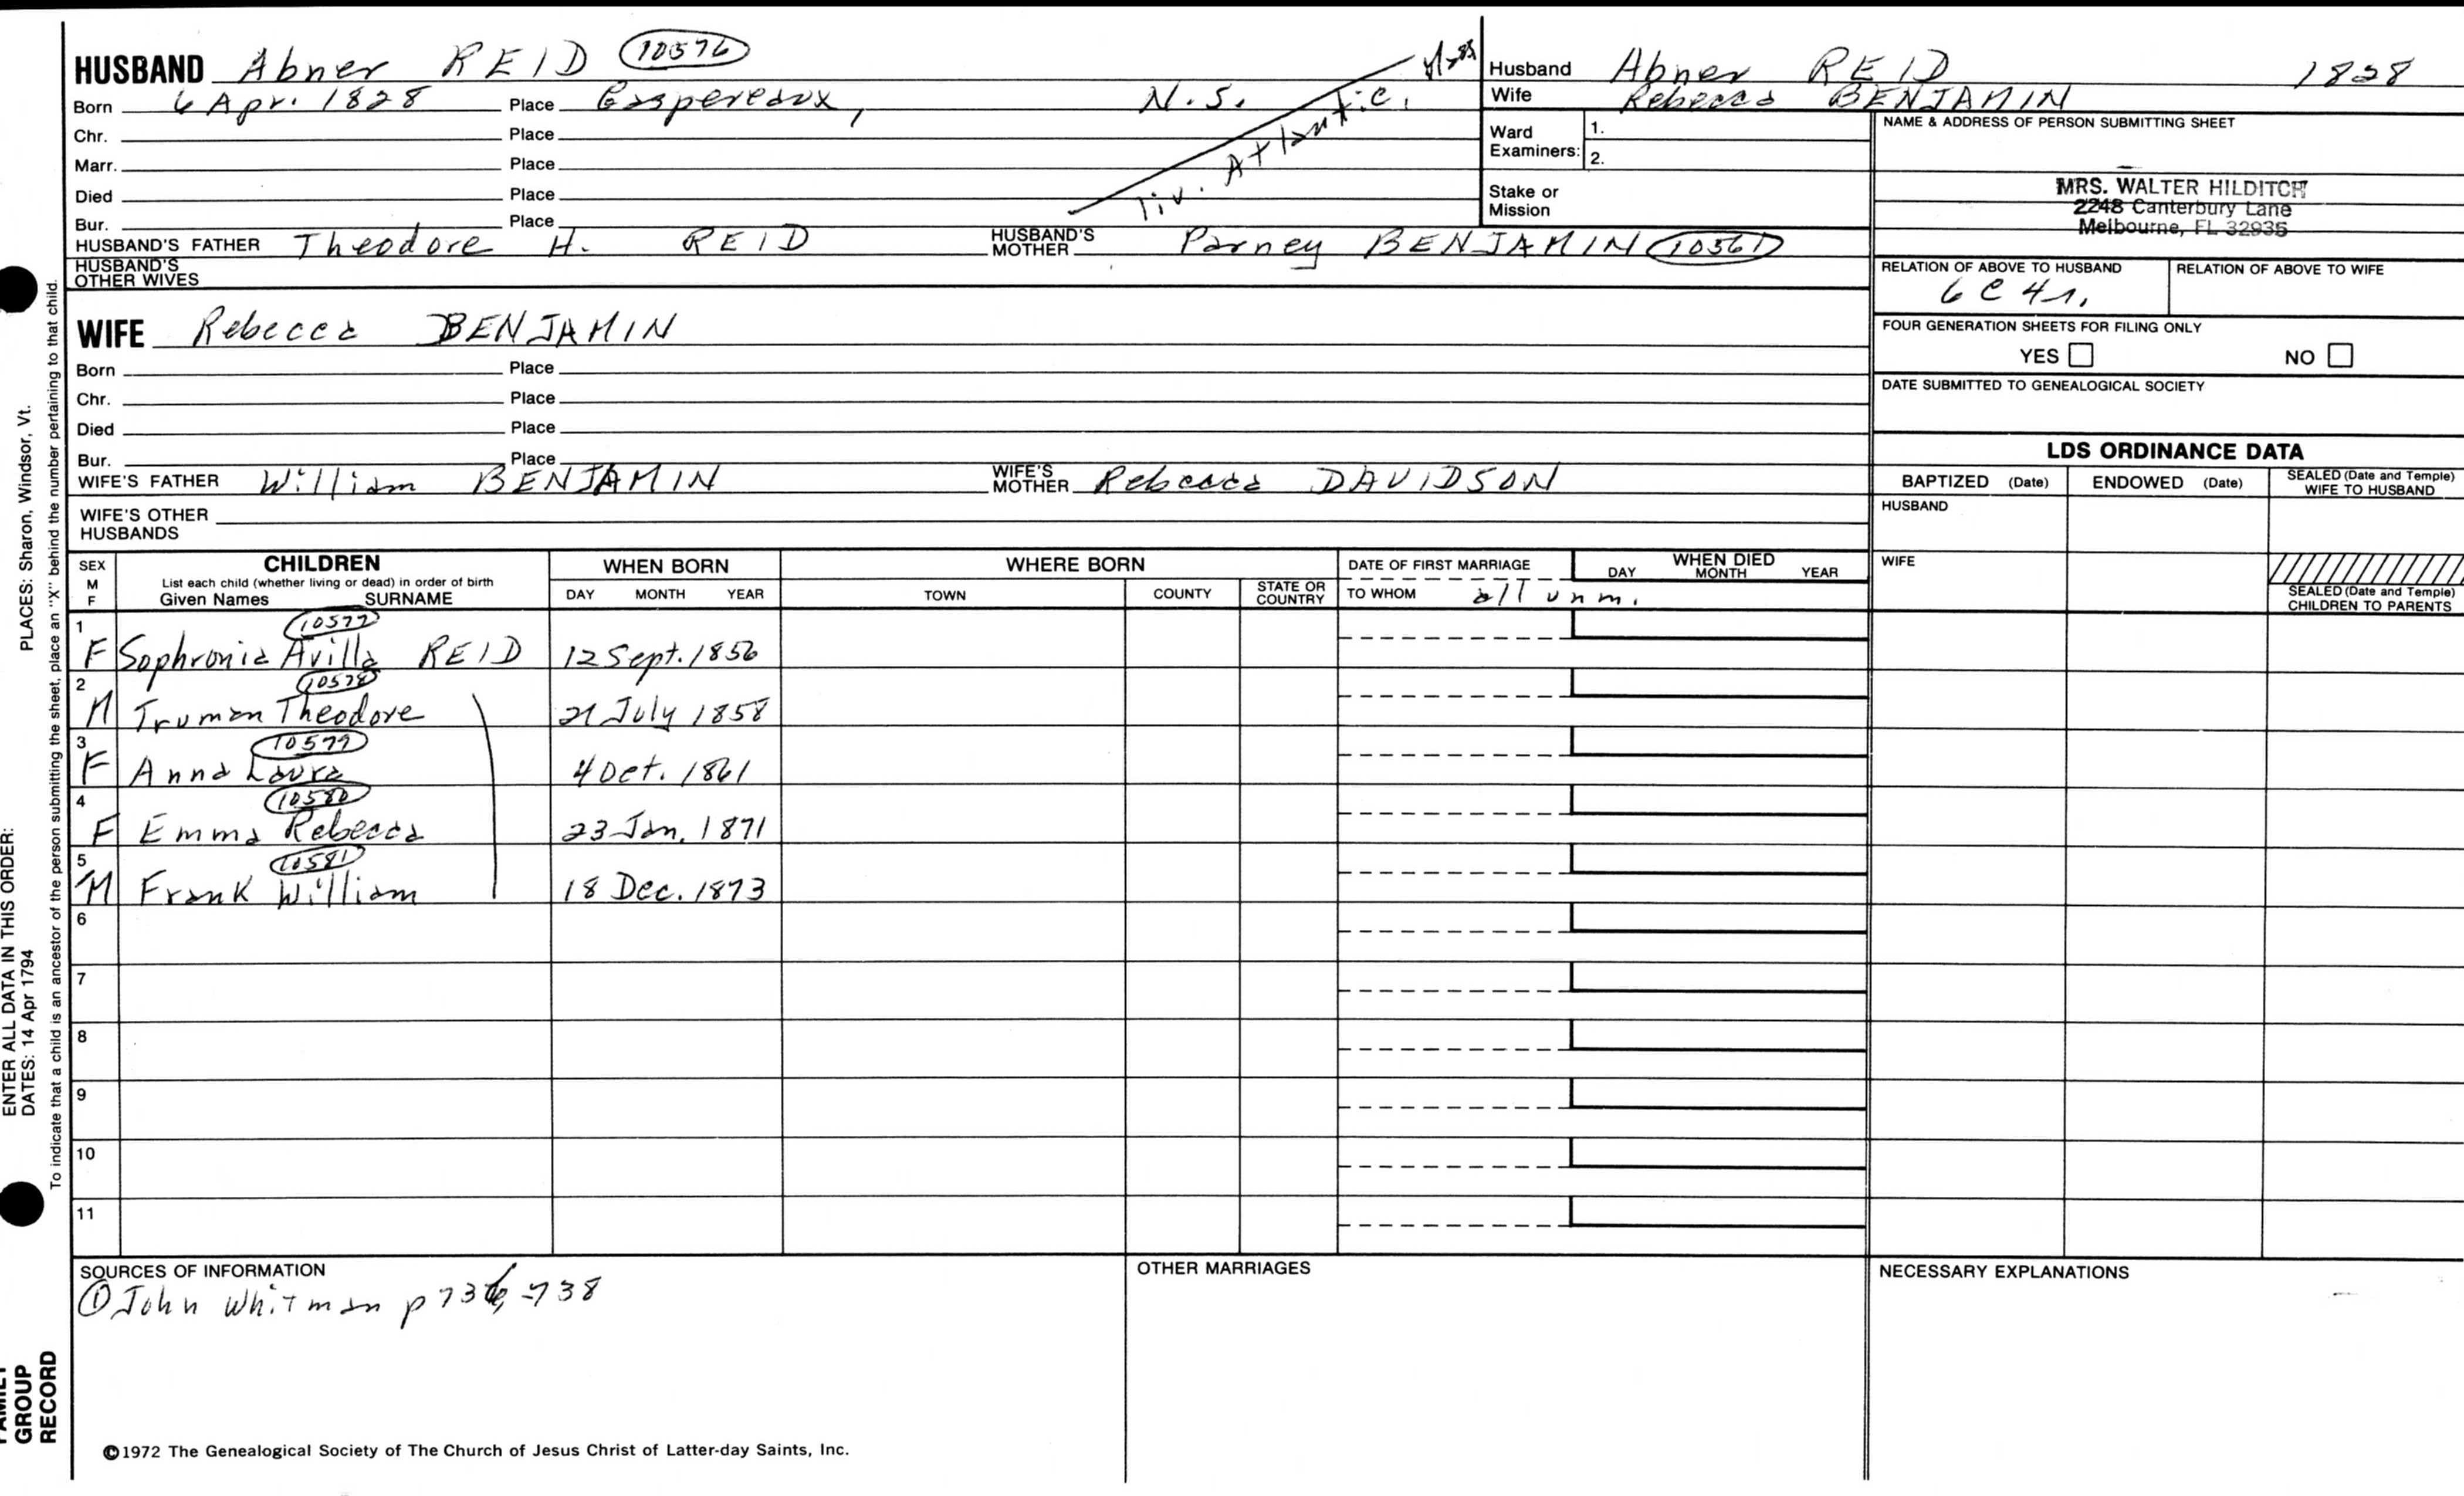 HUSBAND Abner REID 10576
Born 6 Apr. 1828 Place Gaspereaux, N.S.
Chr. Place
Marr. Place
Died Place
Bur. Place
liv. Atlantic, Mass
HUSBAND'S FATHER Theodore H. REID HUSBAND'S MOTHER Parney BENJAMIN 10561
HUSBAND'S OTHER WIVES
WIFE Rebecca BENJAMIN
Born Place
Chr. Place
Died Place
Bur. Place
WIFE'S FATHER William BENJAMIN WIFE'S MOTHER Rebecca DAVIDSON
WIFE'S OTHER HUSBANDS
Husband Abner REID 1828
Wife Rebecca BENJAMIN
Ward Examiners: 1.
2.
Stake or Mission
NAME & ADDRESS OF PERSON SUBMITTING SHEET
MRS. WALTER HILDITCH
2248 Canterbury Lane
Melbourne, FL 32935
RELATION OF ABOVE TO HUSBAND RELATION OF ABOVE TO WIFE
6C4r.
FOUR GENERATION SHEETS FOR FILING ONLY
YES NO
DATE SUBMITTED TO GENEALOGICAL SOCIETY
LDS ORDINANCE DATA
BAPTIZED (Date) ENDOWED (Date) SEALED (Date and Temple) WIFE TO HUSBAND
HUSBAND
WIFE
SEALED (Date and Temple) CHILDREN TO PARENTS
SEX M F CHILDREN WHEN BORN WHERE BORN DATE OF FIRST MARRIAGE WHEN DIED
List each child (whether living or dead) in order of birth
Given Names SURNAME DAY MONTH YEAR TOWN COUNTY STATE OR COUNTRY TO WHOM all unm. DAY MONTH YEAR
1 10577
F Sophronia Avilla REID 12 Sept. 1856
2 10578
M Truman Theodore 21 July 1858
3 10579
F Anna Laura 4 Oct. 1861
4 10580
F Emma Rebecca 23 Jan. 1871
5 10581
M Frank William 18 Dec. 1873
6
7
8
9
10
11
SOURCES OF INFORMATION OTHER MARRIAGES NECESSARY EXPLANATIONS
① John Whitman p 736, -738
©1972 The Genealogical Society of The Church of Jesus Christ of Latter-day Saints, Inc.
ENTER ALL DATA IN THIS ORDER:
DATES: 14 Apr 1794 PLACES: Sharon, Windsor, Vt.
To indicate that a child is an ancestor of the person submitting the sheet, place an "X" behind the number pertaining to that child.
FAMILY GROUP RECORD